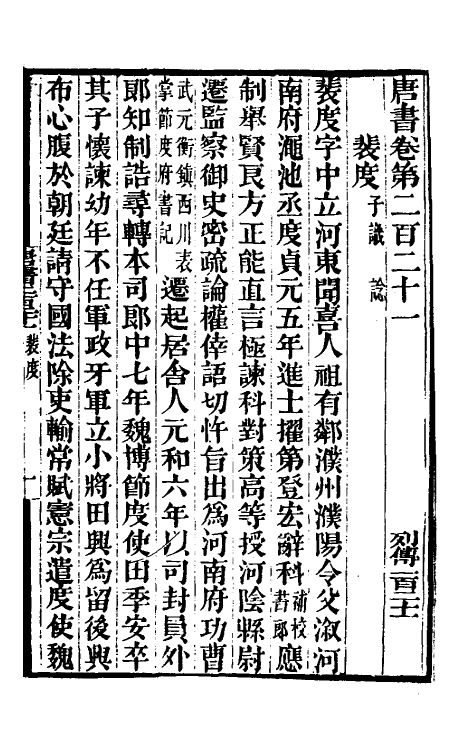 唐書卷第二百二十一
列傳一百
裴度子識 諗
裴度字中立河東聞喜人祖有鄰濮州濮陽令父溆河
南府澠池丞度貞元五年進士擢第登宏辭科補校書郎應
制舉賢良方正能直言極諫科對策高等授河陰縣尉
遷監察御史密疏論權倖語切忤旨出為河南府功曹
武元衡鎮西川表掌節度府書記遷起居舍人元和六年以司封員外
郎知制誥尋轉本司郎中七年魏博節度使田季安卒
其子懷諫幼年不任軍政牙軍立小將田興為留後興
布心腹於朝廷請守國法除吏輸常賦憲宗遣度使魏
裴度